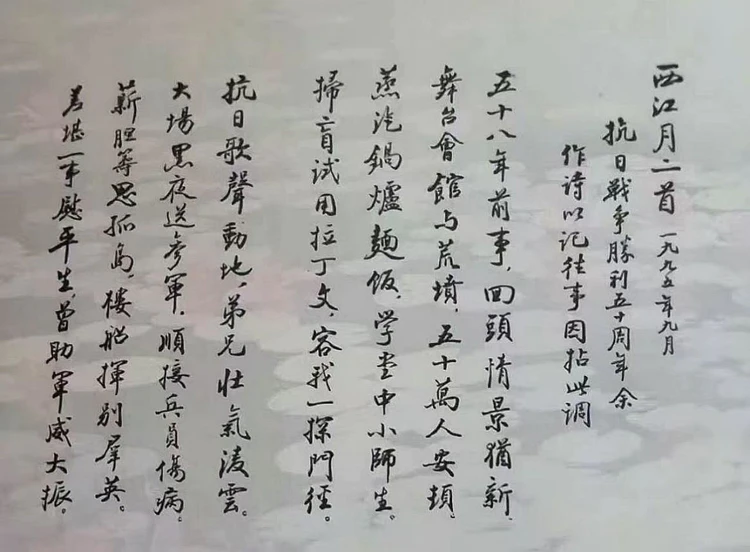 西江月二首 一九九五年九月
抗日戰争勝利五十周年余
作诗以记往事因拈此调
五十八年前事，回頭情景猶新。
舞台會館与荒墳，五十萬人安頓。
蒸汽鍋爐麵飯，学堂中小師生。
掃盲试用拉丁文，容我一探門径。
抗日歌聲動地，弟兄壮氣淩雲。
大場黑夜送参軍，順接兵員傷病。
薪胆等思孤島，楼船揮别羣英。
差堪一事慰平生，曾助軍威大振。